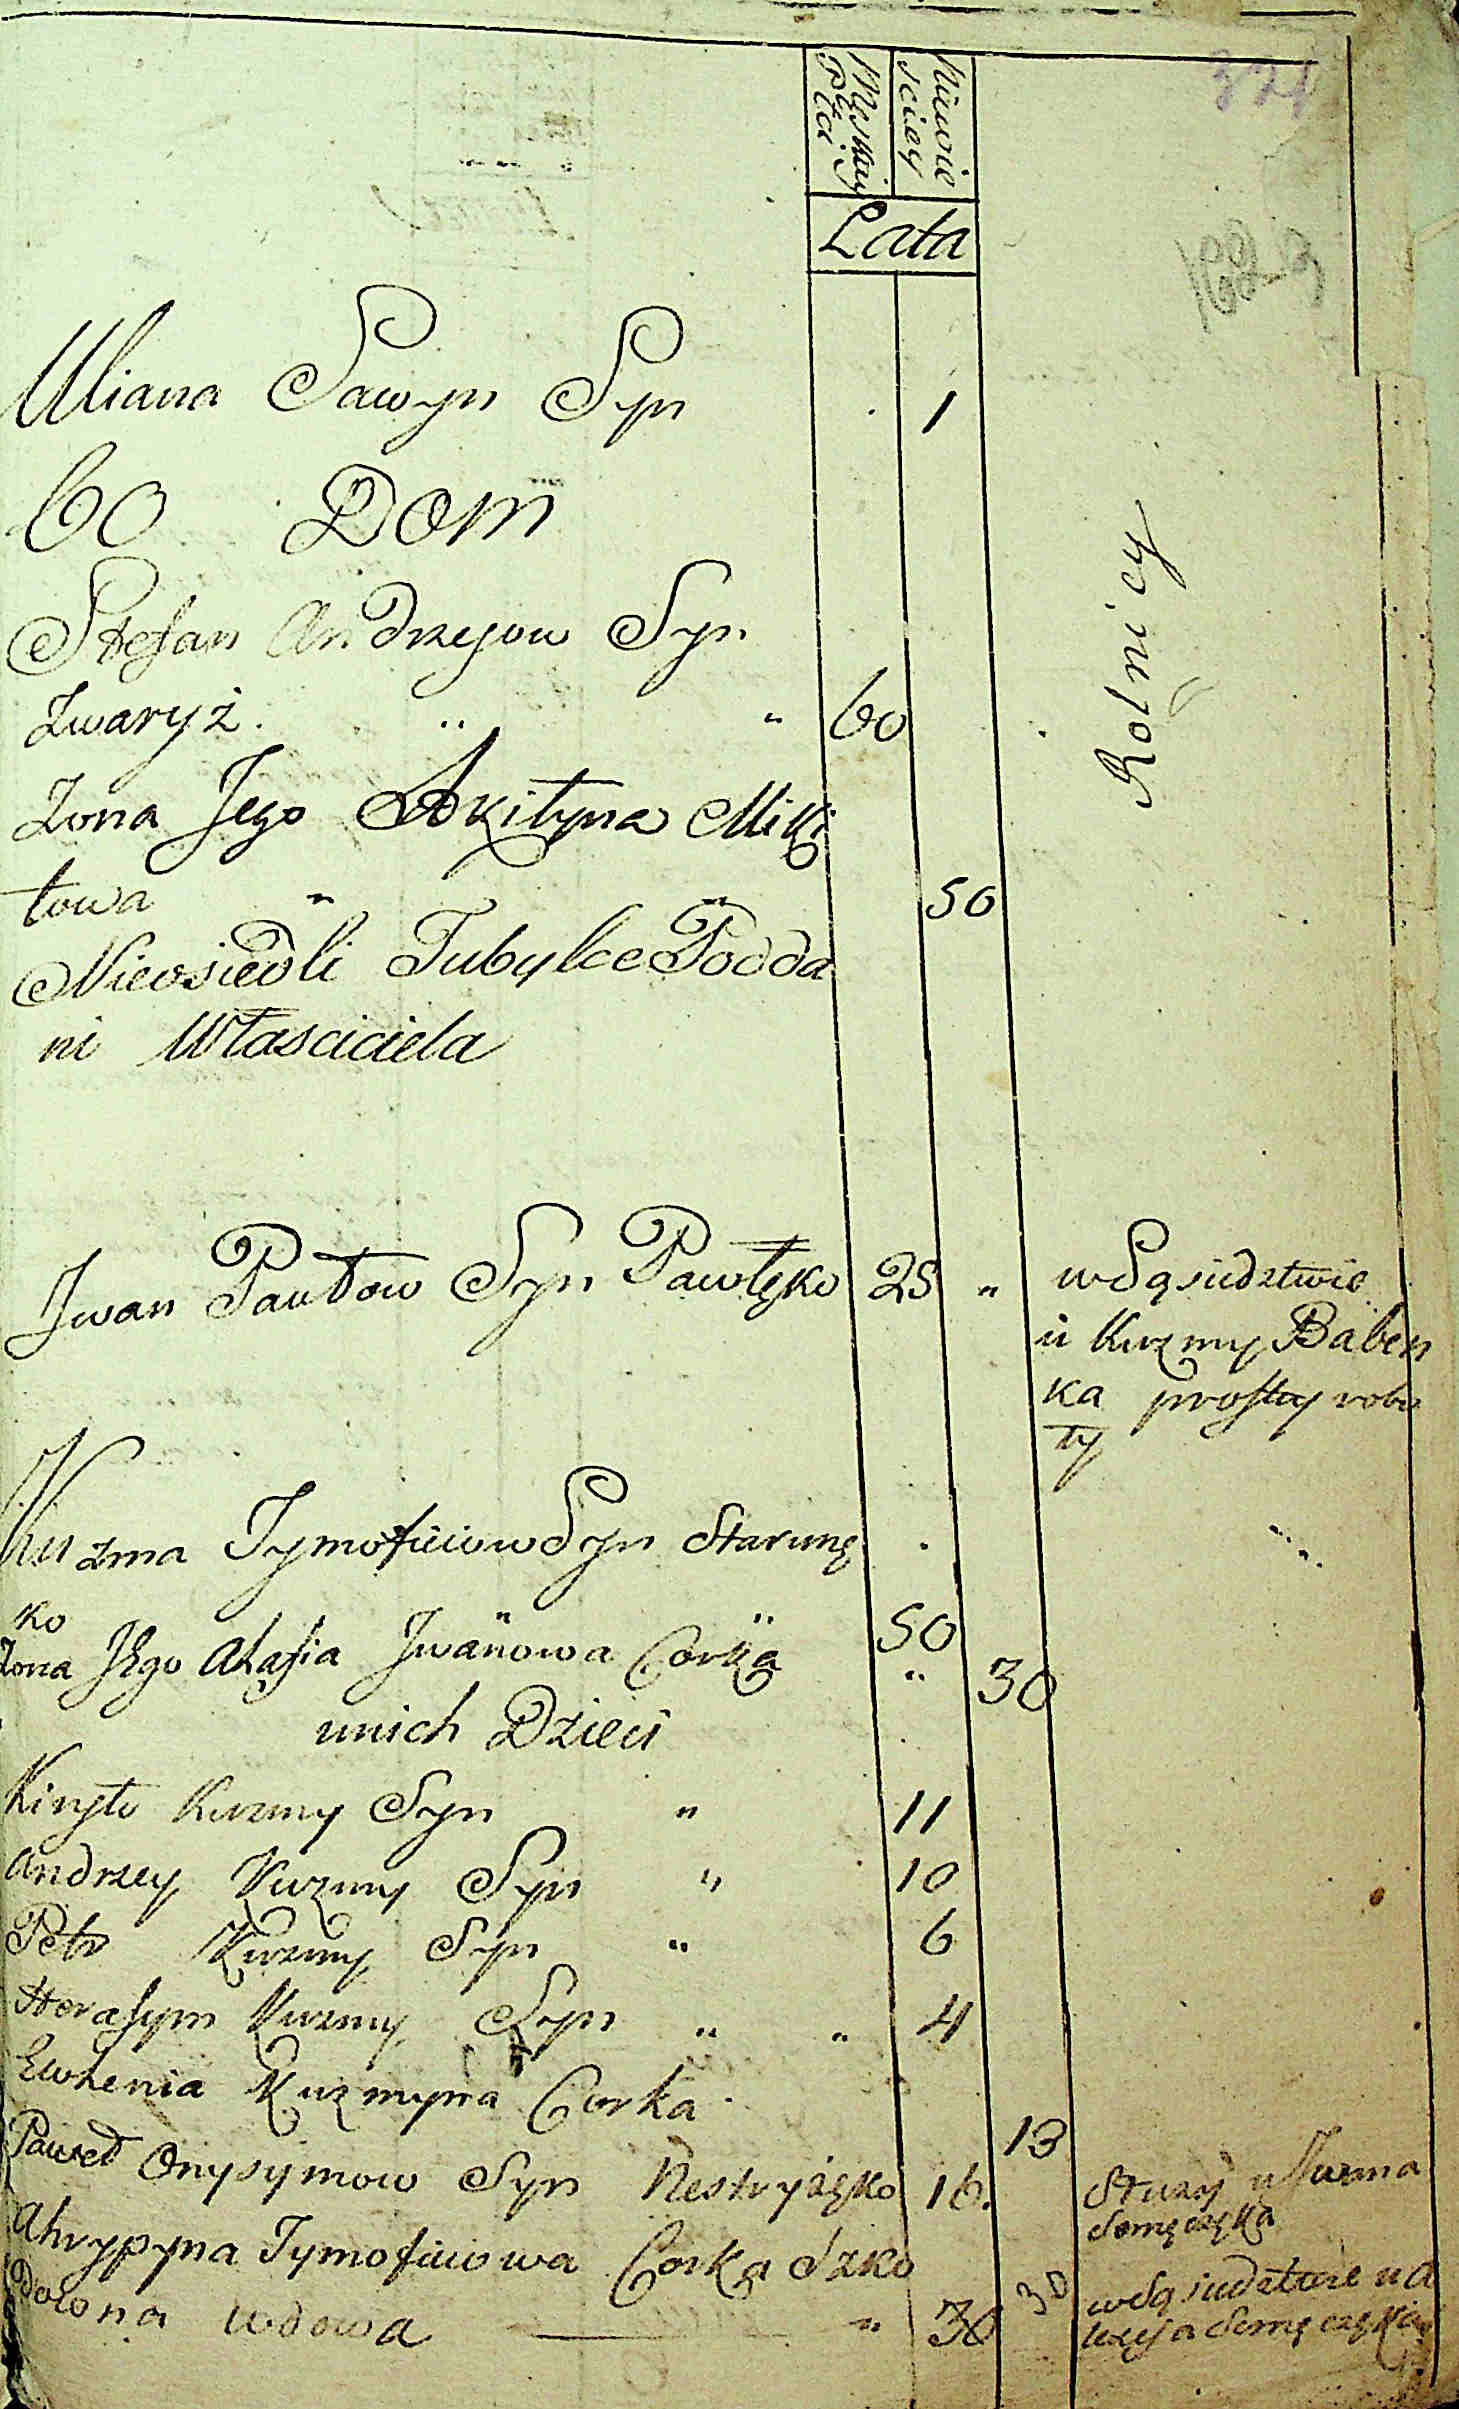 321
Męskiey Płci
Niewie sciey
Lata
Uliana Sawyn Syn 1
60 Dom
Stefan Andrzejow Syn
Zwaryż. " " 60
Rolnicy
Zona Jego Akilyna Miki
towa " " 50
Nieosiedli Tubylce Podda
ni Własciciela
Jwan Pawłow Syn Pawłęko 25 " w Sąsiedztwie
u Kuzmy Baben
ka prostey robo
ty
Kuzma Tymofieiow Syn Starunę
ko " " 50
Zona Jego Ahafia Jwanowa Corka " 30
unich Dzieci
Kiryło Kuzmy Syn " 11
Andrzey Kuzmy Syn " 10
Petr Kuzmy Syn " 6
Herasym Kuzmy Syn " " 4
Ewhenia Kuzmyna Corka 13
Paweł Onysymow Syn Nestryżęko 16. Służy u
Semęczęka
Ahrypyna Tymofieiowa Corka Szko
Wdowa " 30 w Sąsiedztwie u
Semęczęka